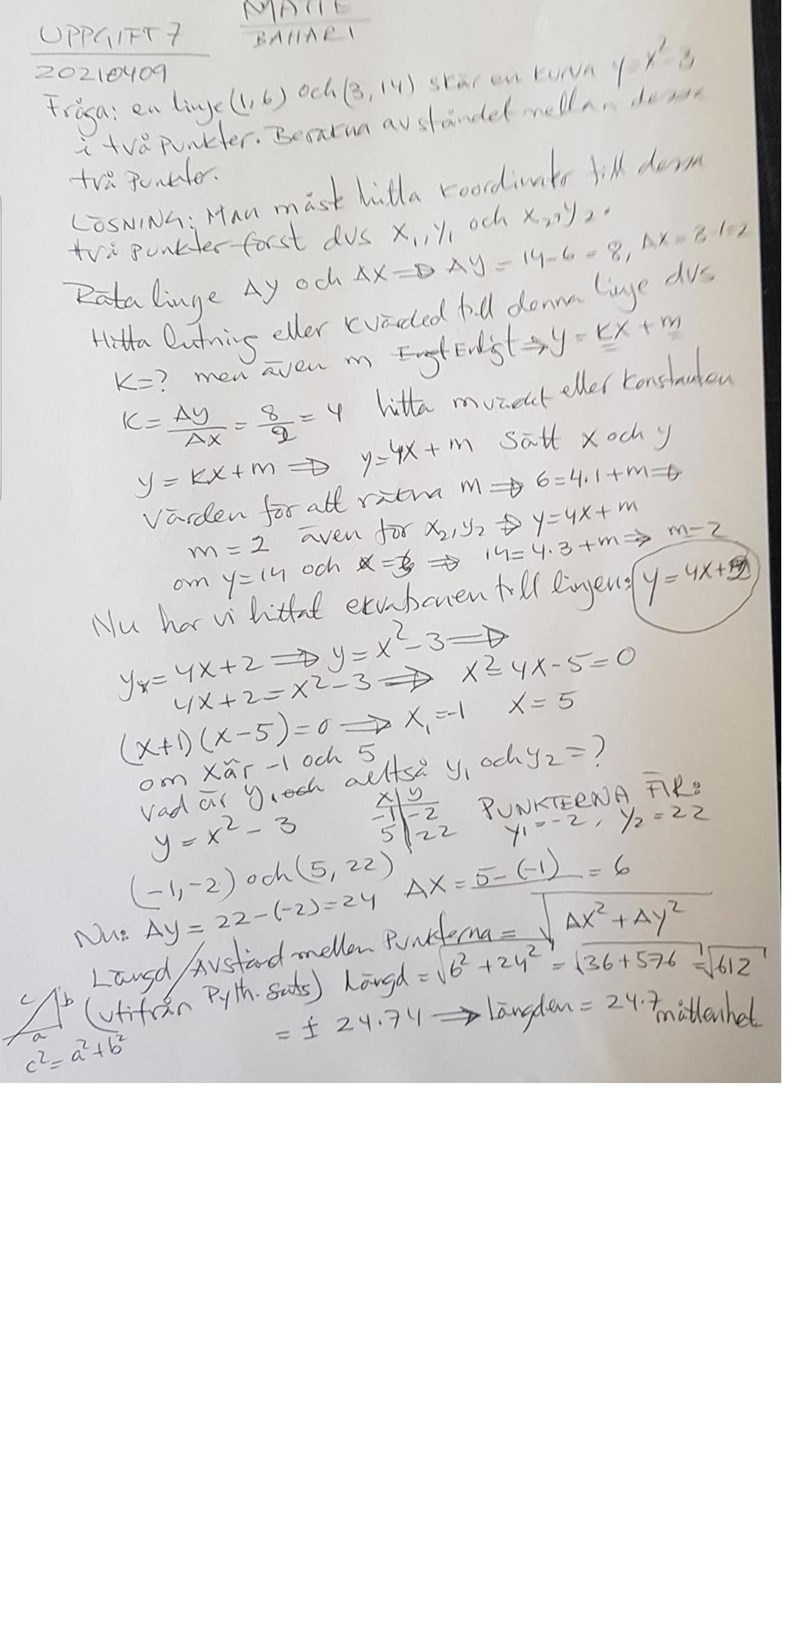 UPPGIFT 7
MATTE
BAHARI
20210409
Fråga: en linje (1,6) och (3,14) skär en kurva y=x²-3
i två punkter. Beräkna avståndet mellan dessa
två punkter.
LÖSNING: Man måst hitta koordinater till dessa
två punkter först dvs x₁,y₁ och x₂,y₂.
Räta linge Δy och Δx ⇒ Δy = 14-6 = 8, Δx = 3-1=2
Hitta lutning eller kvärded till denna linje dvs
K=? men även m Enligt ⇒ y = kx + m
K = Δy/Δx = 8/2 = 4 hitta mvärdet eller konstanten
y = kx+m ⇒ y=4x+m Sätt x och y
värden för att räkna m ⇒ 6=4.1+m ⇒
m = 2 även för x₂,y₂ ⇒ y=4x+m
om y=14 och x=3 ⇒ 14=4.3+m ⇒ m=2
Nu har vi hittat ekvationen till linjen: y=4x+2
y=4x+2 ⇒ y=x²-3 ⇒
4x+2=x²-3 ⇒ x²-4x-5=0
(x+1)(x-5)=0 ⇒ x₁=-1 x=5
om x är -1 och 5
vad är y, och alltså y₁ och y₂=?
y = x²-3
x | y
-1 | -2
5 | 22
PUNKTERNA ÄR:
y₁=-2, y₂=22
(-1,-2) och (5,22)
Nu: Δy = 22-(-2)=24 Δx = 5-(-1) = 6
Längd/Avstånd mellan Punkterna = √Δx²+Δy²
(utifrån Pyth. sats) längd = √6²+24² = √36+576 = √612
= ± 24.74 ⇒ Längden = 24.7 måttenhet
c b
a
c²=a²+b²